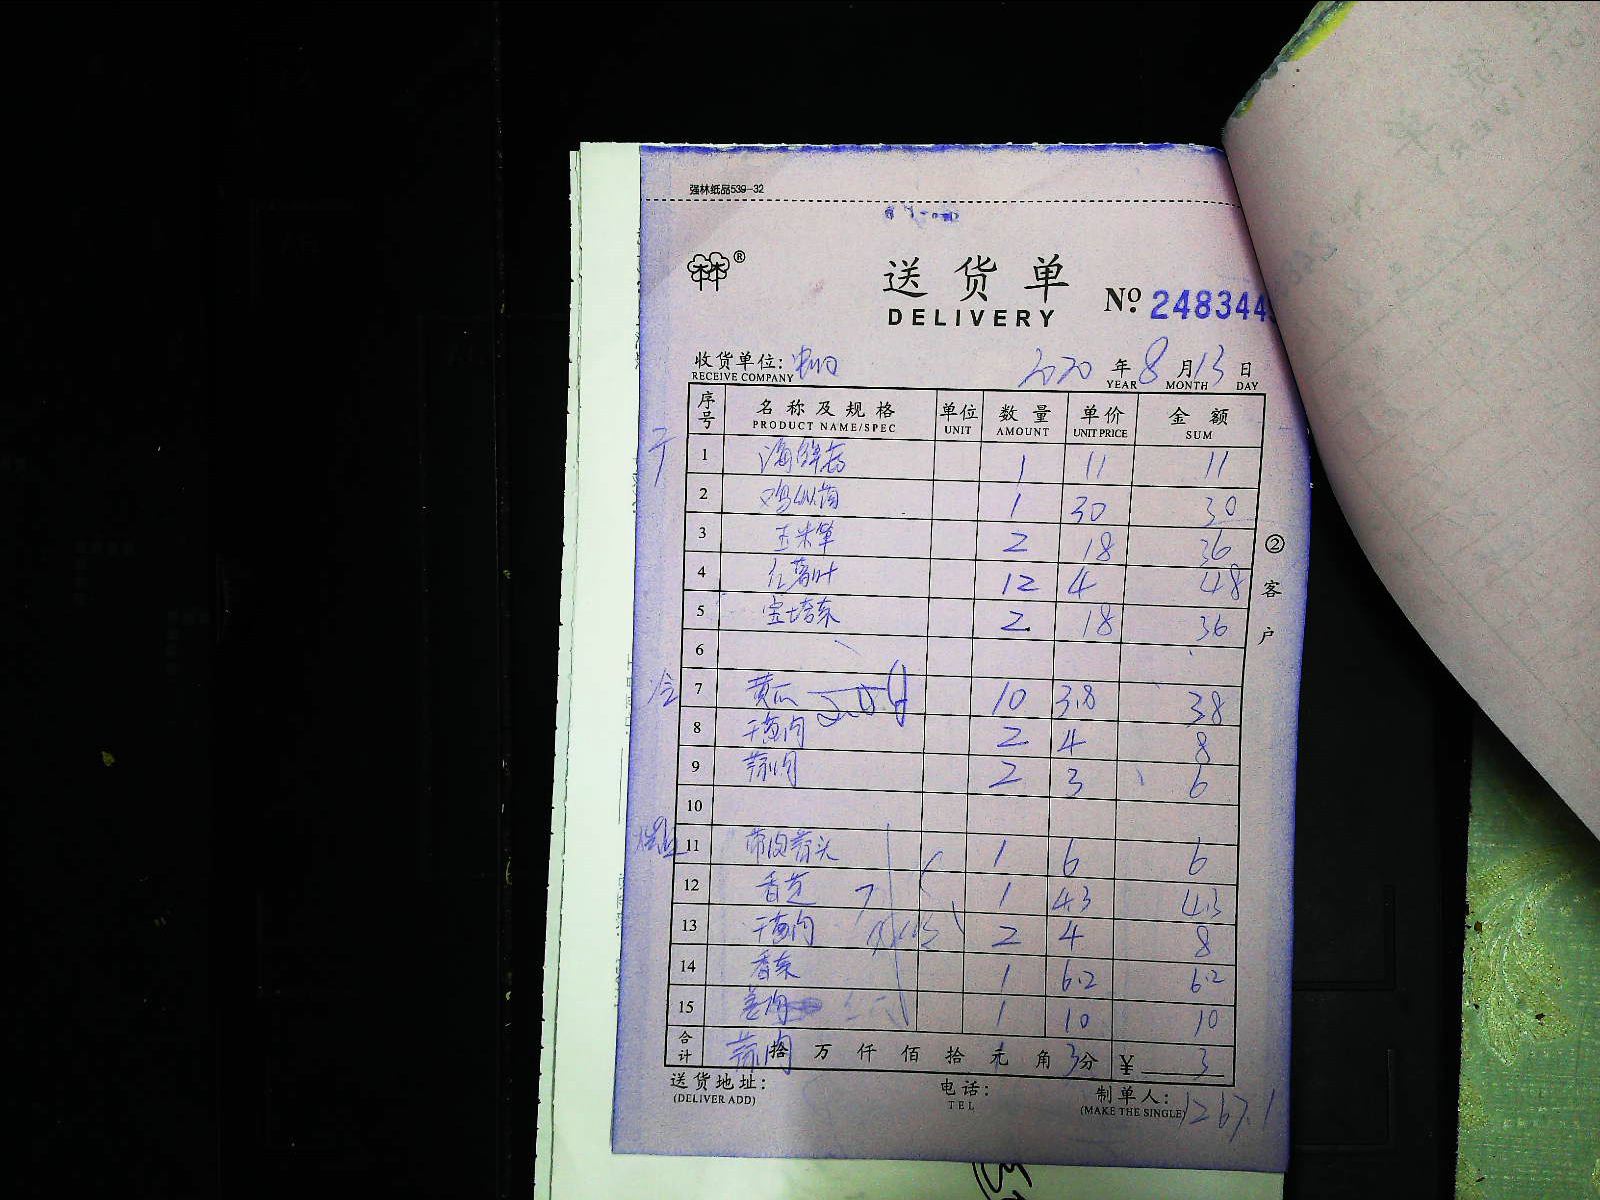 强林纸品539-32
林®
送货单
DELIVERY
No. 248344
收货单位:
RECEIVE COMPANY
2020 年 8 月 13 日
YEAR MONTH DAY
序号 名称及规格 单位 数量 单价 金额
PRODUCT NAME/SPEC UNIT AMOUNT UNIT PRICE SUM
1 海鲜菇 1 11 11
2 鸡枞菌 1 30 30
3 玉米笋 2 18 36
4 红薯叶 12 4 48
5 宝塔菜 2 18 36
6
7 黄瓜 10 3.8 38
8 干葱肉 2 4 8
9 蒜肉 2 3 6
10
11 带皮蒜头 1 6 6
12 香芝 1 4.3 4.3
13 干葱肉 2 4 8
14 香菜 1 6.2 6.2
15 姜肉 1 10 10
合计 蒜肉 拾 万 仟 佰 拾 元 角 3 分 ¥ 3
送货地址:
(DELIVER ADD)
电话:
TEL
制单人:
(MAKE THE SINGLE)
1267.1
②客户